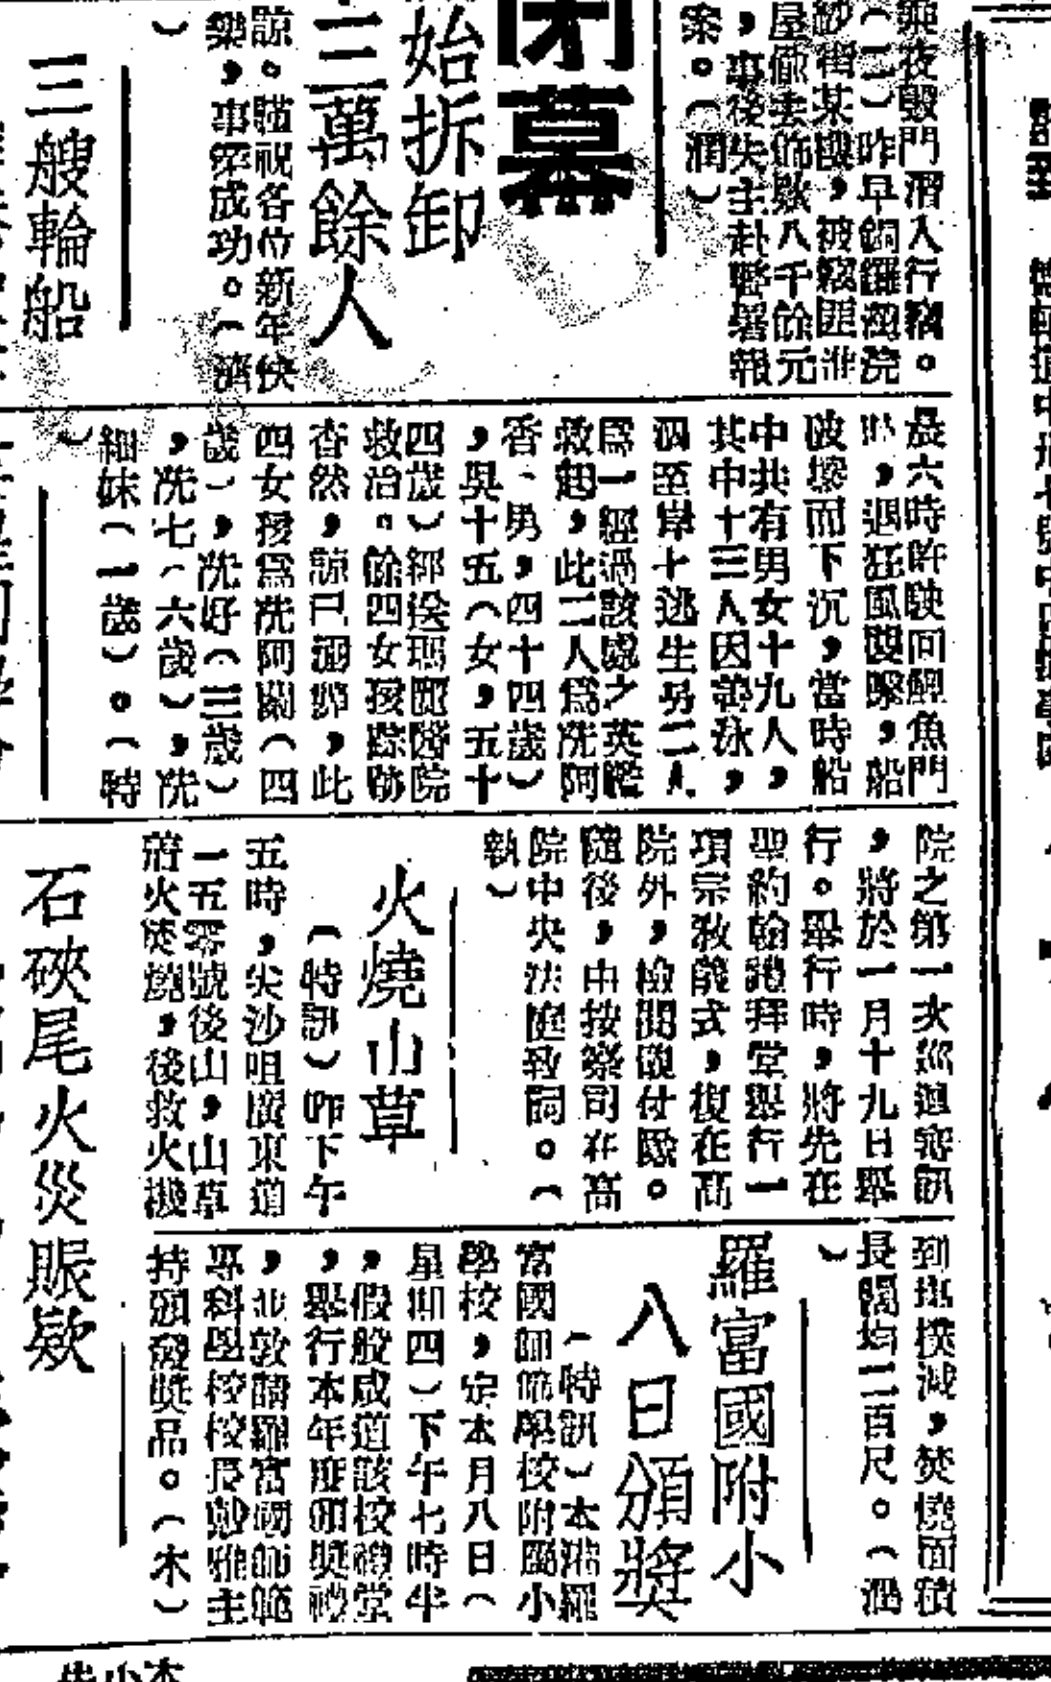 乘夜毀門潛入行竊。
(二)昨早銅鑼灣浣
紗街某號,被竊匪
屋偷去飾款八千餘元
,事後失主赴警署報
案。(潤)
閉幕
始拆卸
三萬餘人
諒。謹祝各位新年快
樂,事業成功。(濟
)
三艘輪船
晨六時許駛回鯉魚門
時,遇狂風襲擊,船
破壞而下沉,當時船
中共有男女十九人,
其中十三人因善泳,
泅至岸上逃生另二人
爲一經過該處之英艦
救起,此二人爲冼阿
香、男,四十四歲)
,與十五(女,五十
四歲)經送瑪麗醫院
救治。餘四女孩踪跡
杳然,諒已溺斃,此
四女孩爲冼阿關(四
歲),冼好(三歲)
,冼七(六歲),冼
細妹(一歲)。(特
)
院之第一次巡迴審訊
,將於一月十九日舉
行。舉行時,將先在
聖約翰禮拜堂舉行一
項宗教儀式,復在高
院外,檢閱儀仗隊。
隨後,由按察司在高
院中央法庭致詞。(
執)
火燒山草
(特訊)昨下午
五時,尖沙咀廣東道
一五零號後山,山草
着火焚燒,後救火機
到場撲滅,焚燒面積
長闊均二百尺。(潤
)
石硤尾火災賑欵
羅富國附小
八日頒獎
(特訊)本港羅
富國師範學校附屬小
學校,定本月八日(
星期四)下午七時半
,假般咸道該校禮堂
,舉行本年度頒獎禮
,並敦請羅富國師範
專科學校校長 主
持頒發獎品。(木)